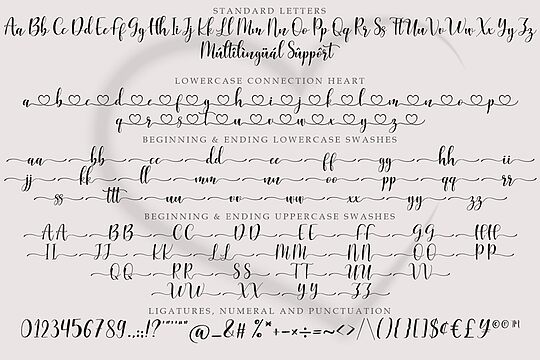 STANDARD LETTERS
Aa Bb Cc Dd Ee Ff Gg Hh Ii Jj Kk Ll Mm Nn Oo Pp Qq Rr Ss Tt Uu Vv Ww Xx Yy Zz
Múltilingüál Sûppórt
LOWERCASE CONNECTION HEART
a♡b♡c♡d♡e♡f♡g♡h♡i♡j♡k♡l♡m♡n♡o♡p
q♡r♡s♡t♡u♡v♡w♡x♡y♡z♡
BEGINNING & ENDING LOWERCASE SWASHES
aa bb cc dd ee ff gg hh ii
jj kk ll mm nn oo pp qq rr
ss ttt uu vv ww xx yy zz
BEGINNING & ENDING UPPERCASE SWASHES
AA BB CC DD EE FF GG HH
II JJ KK LL MM NN OO PP
QQ RR SS TT UU VV
WW XX YY ZZ
LIGATURES, NUMERAL AND PUNCTUATION
0123456789.,:;!?'""'"" @_&# %*+-×÷=~<>/\(){}[]$¢€£¥©®™|